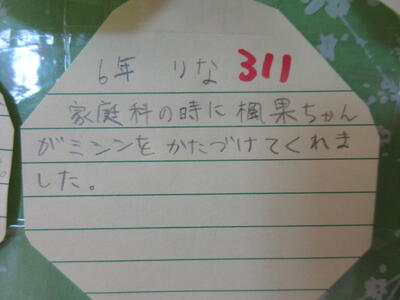 6年 りな 311
家庭科の時に楓果ちゃん
がミシンをかたづけてくれま
した。